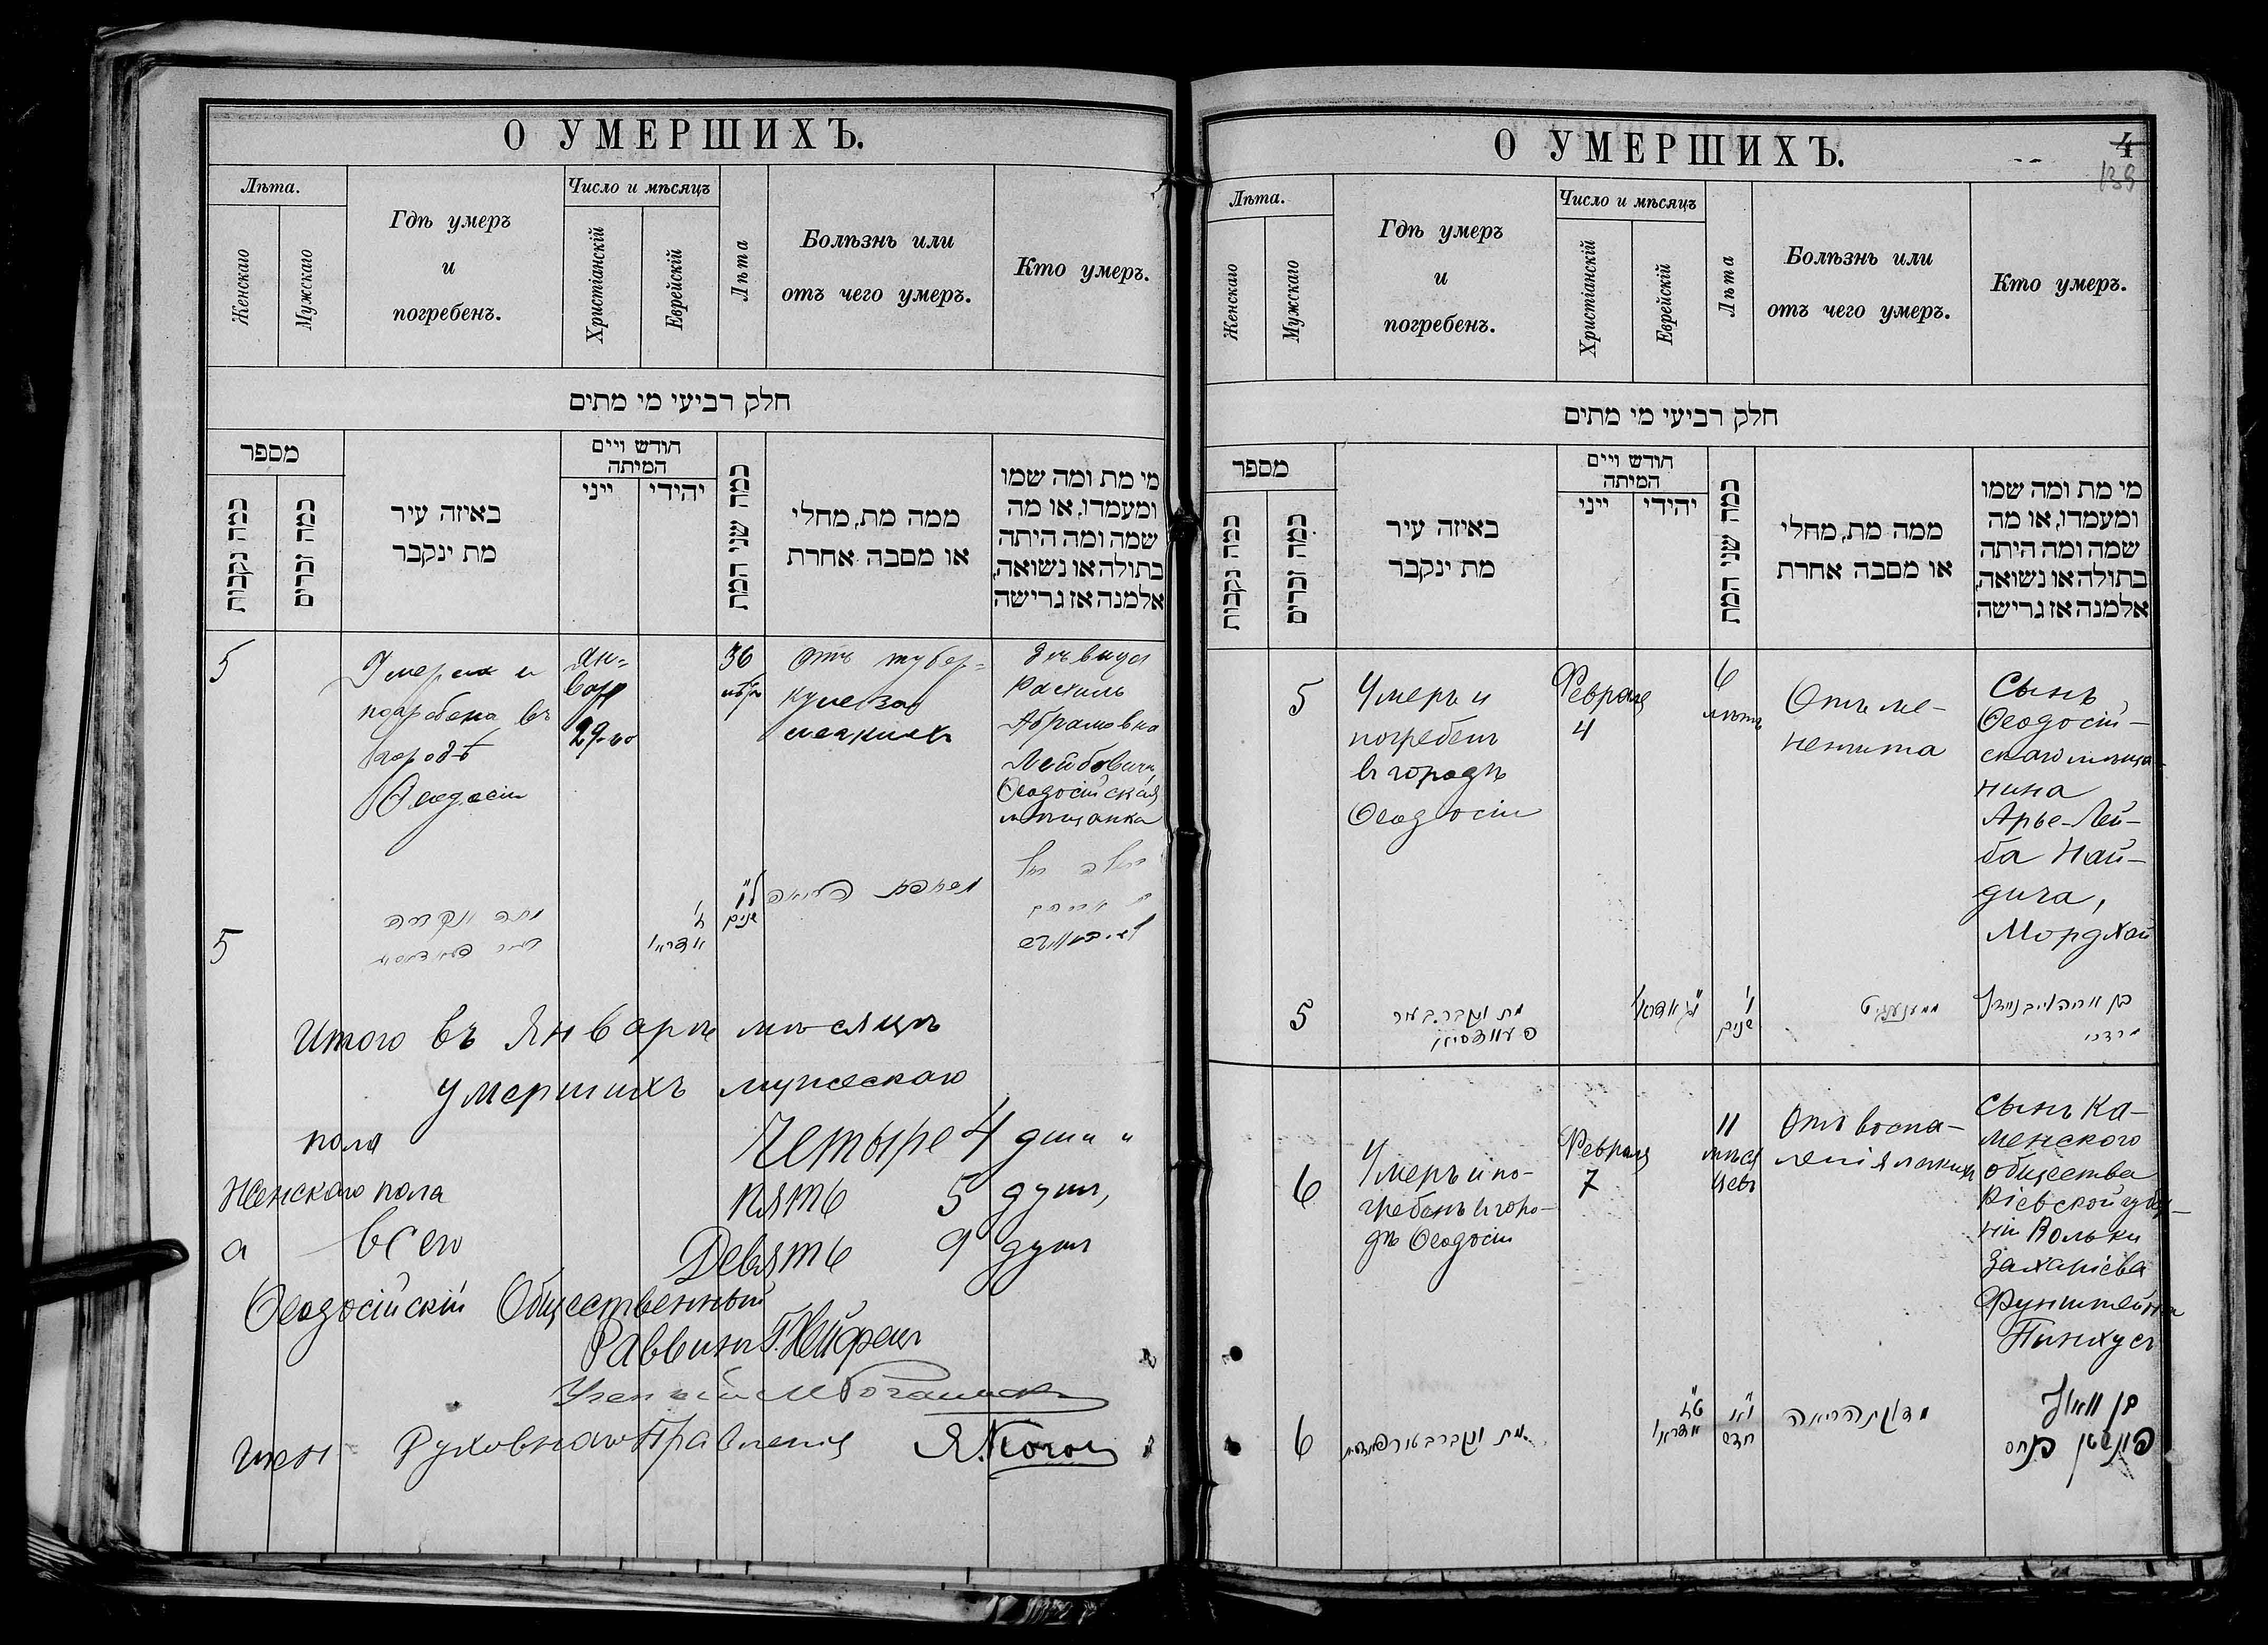 О УМЕРШИХЪ.
Лѣта.
Женскаго
Мужскаго
Гдѣ умеръ
и
погребенъ.
Число и мѣсяцъ
Христіанскій
Еврейскій
Лѣта
Болѣзнь или
отъ чего умеръ.
Кто умеръ.
חלק רביעי מי מתים
מספר
כמה נקבות
כמה זכרים
באיזה עיר
מת ינקבר
חודש ויים
המיתה
ייני
יהידי
כמה שני המת
ממה מת, מחלי
או מסבה אחרת
מי מת ומה שמו
ומעמדו, או מה
שמה ומה היתה
בתולה או נשואה,
אלמנה אז גרישה
5
Умерла и
погребена въ
городѣ
Ѳеодосіи
Ян-
варя
29-го
36
лѣтъ
Отъ тубер-
кулеза
легкихъ
Дѣвица
Рахиль
Абрамовна
Лейбовичъ
Ѳеодосійская
мѣщанка
5
ל"ו
שנים
Итого въ Январѣ мѣсяцѣ
умершихъ мужескаго
пола Четыре 4 души
Женскаго пола пять 5 душъ,
а всего Девять 9 душъ
Ѳеодосійскій Общественный
Раввинъ
Ученый
Член Духовнаго Правленія
О УМЕРШИХЪ.
4
139
Лѣта.
Женскаго
Мужскаго
Гдѣ умеръ
и
погребенъ.
Число и мѣсяцъ
Христіанскій
Еврейскій
Лѣта
Болѣзнь или
отъ чего умеръ.
Кто умеръ.
חלק רביעי מי מתים
מספר
כמה נקבות
כמה זכרים
באיזה עיר
מת ינקבר
חודש ויים
המיתה
ייני
יהידי
כמה שני המת
ממה מת, מחלי
או מסבה אחרת
מי מת ומה שמו
ומעמדו, או מה
שמה ומה היתה
בתולה או נשואה,
אלמנה אז גרישה
5
Умеръ и
погребенъ
въ городѣ
Ѳеодосіи
Февраля
4
6
лѣтъ
Отъ ме-
нингита
Сынъ
Ѳеодосій-
скаго мѣща-
нина
Арье-Лей-
ба Най-
дича,
Мордхай
5
מת ונקבר בעיר
ו'
שנים
מרדכי
6
Умеръ и по-
гребенъ въ горо-
дѣ Ѳеодосіи
Февраля
7
11
мѣся
цевъ
Отъ воспа-
ленія легкихъ
Сынъ Ка-
менского
общества
Кіевской губер-
ніи Вольки
Захаріева
Фунштейна
Пинхусъ
6
מת ונקבר
י"א
חדש
מדלקת הריאה
בן וואלף
פונשטיין פנחס